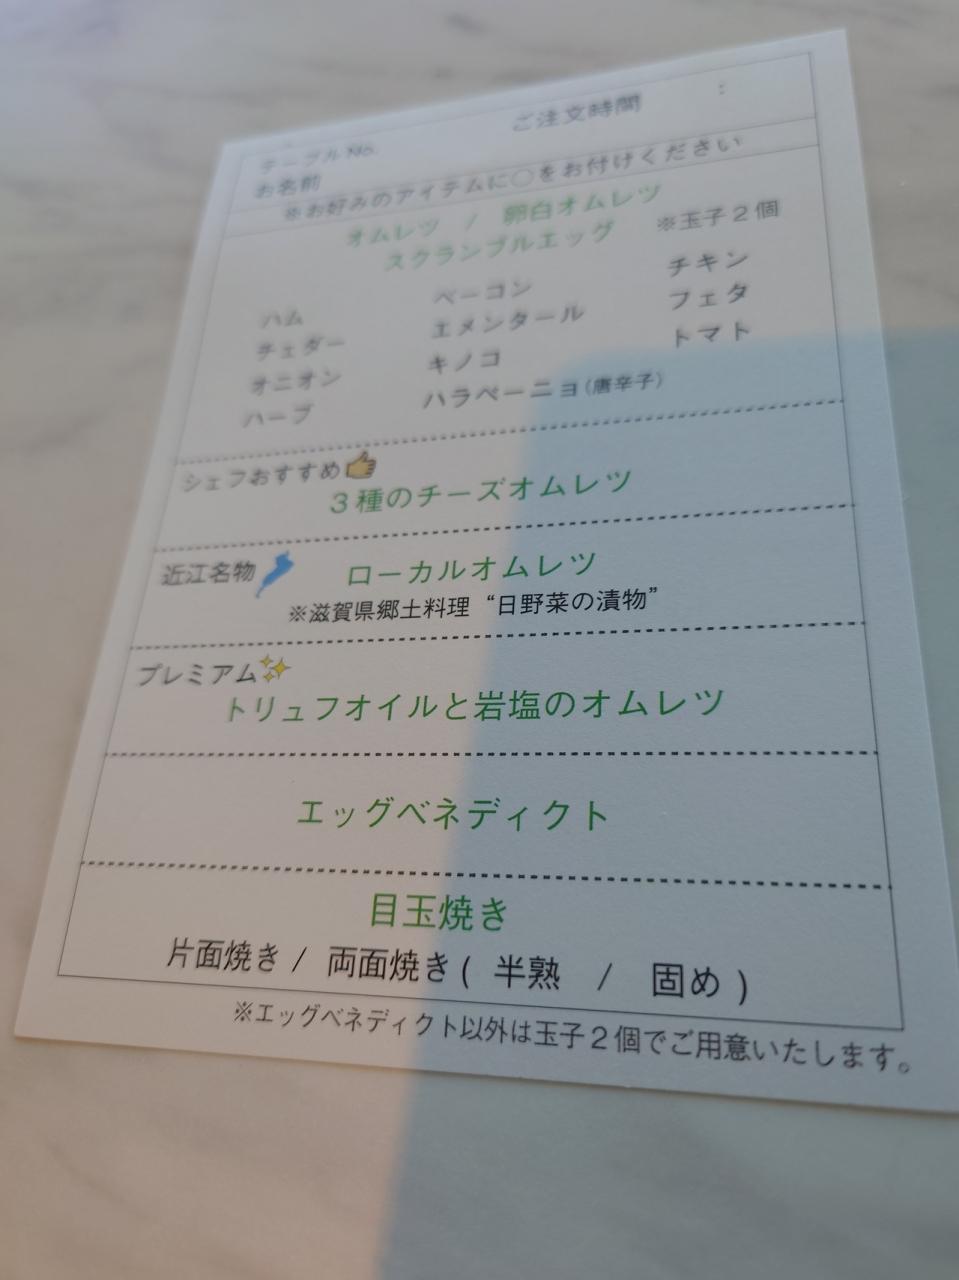 テーブルNo.
ご注文時間 :
お名前
※お好みのアイテムに〇をお付けください
オムレツ / 卵白オムレツ
スクランブルエッグ ※玉子2個
ハム ベーコン チキン
チェダー エメンタール フェタ
オニオン キノコ トマト
ハーブ ハラペーニョ(唐辛子)
シェフおすすめ👍
3種のチーズオムレツ
近江名物 ローカルオムレツ
※滋賀県郷土料理 “日野菜の漬物”
プレミアム✨
トリュフオイルと岩塩のオムレツ
エッグベネディクト
目玉焼き
片面焼き / 両面焼き ( 半熟 / 固め )
※エッグベネディクト以外は玉子2個でご用意いたします。